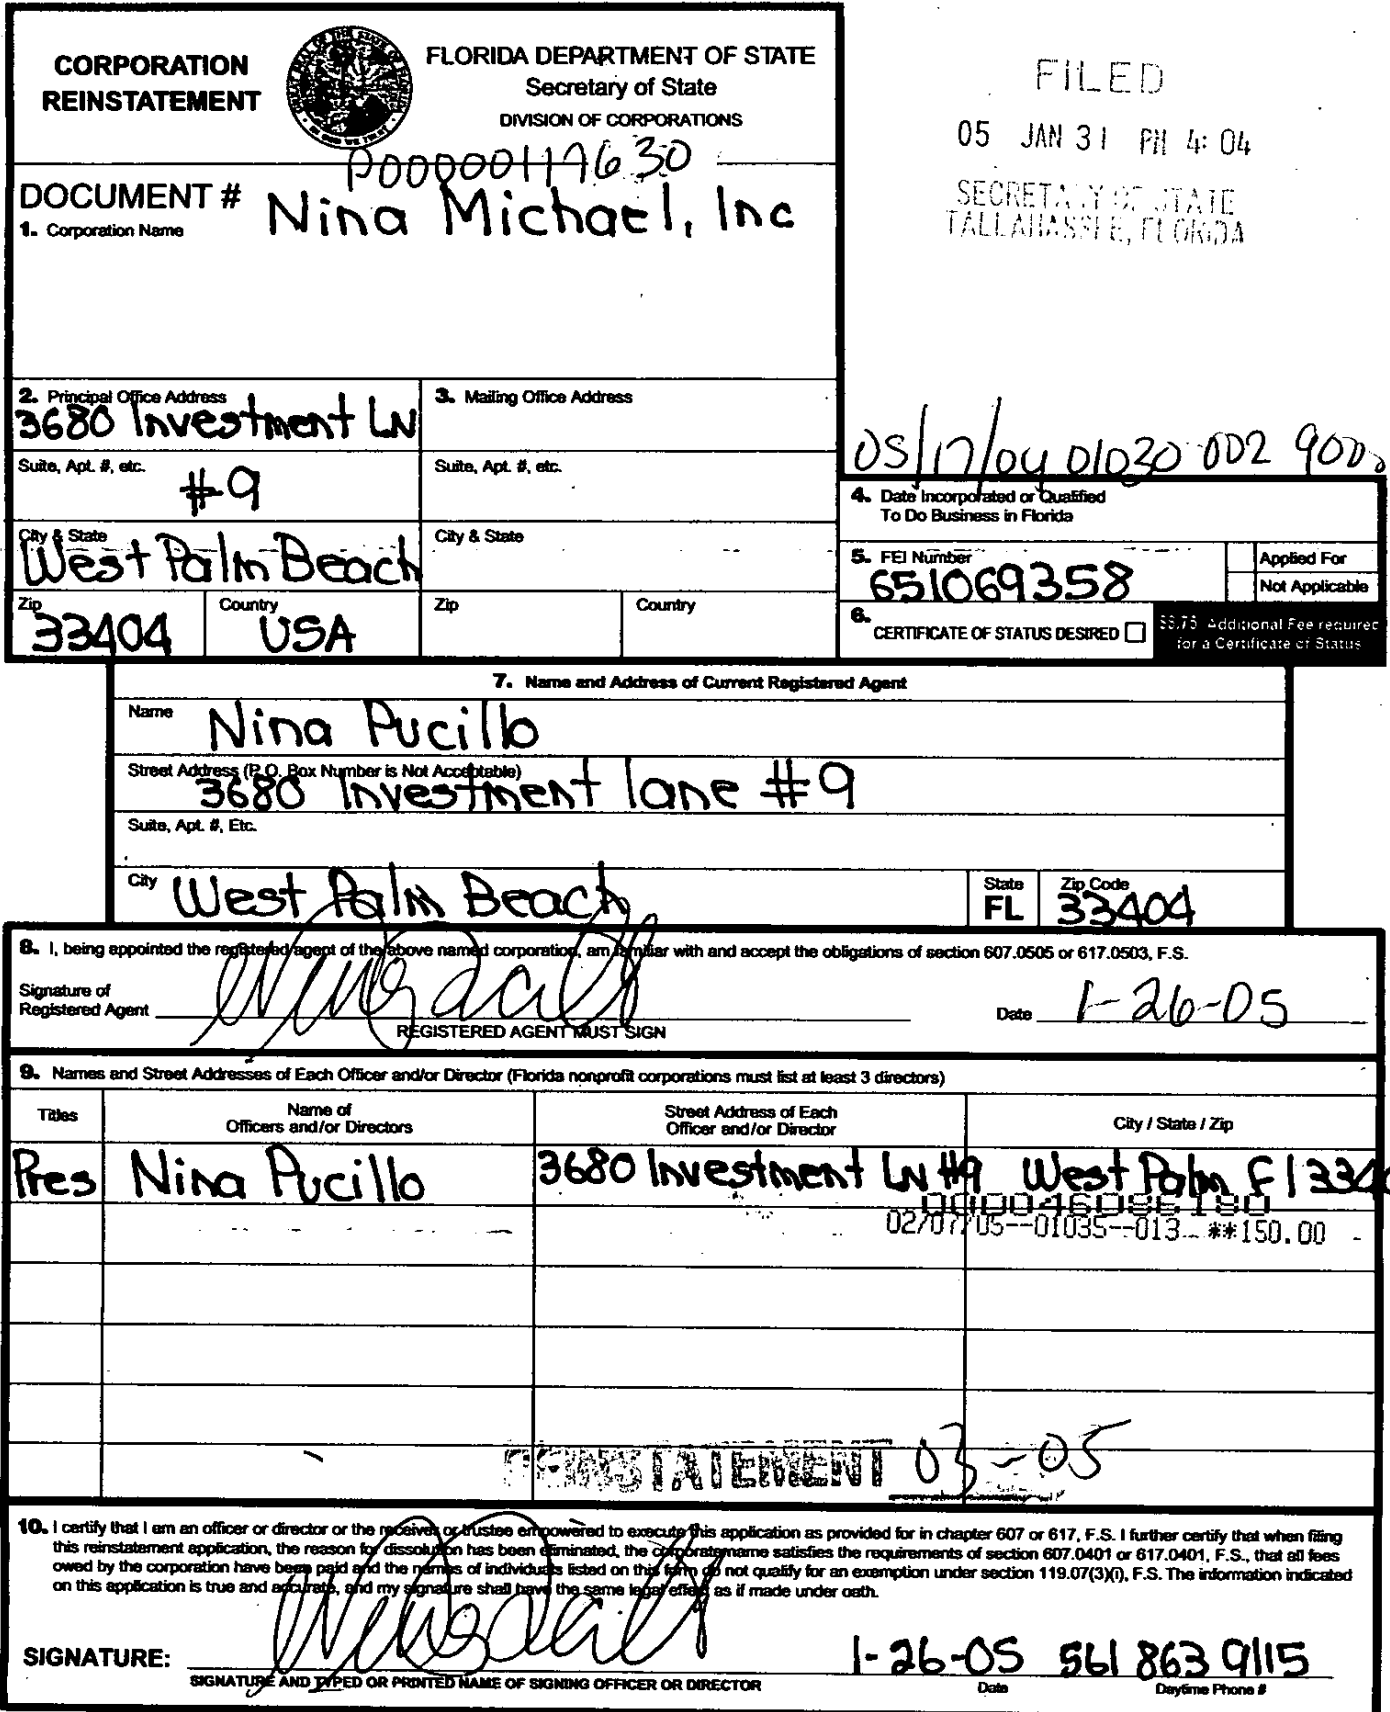 CORPORATION
REINSTATEMENT
FLORIDA DEPARTMENT OF STATE
Secretary of State
DIVISION OF CORPORATIONS
FILED
05 JAN 31 PM 4:04
SECRETARY OF STATE
TALLAHASSEE, FLORIDA
P00000119630
DOCUMENT #
1. Corporation Name
Nina Michael, Inc
2. Principal Office Address
3680 Investment LN
3. Mailing Office Address
Suite, Apt. #, etc.
#9
Suite, Apt. #, etc.
05/17/04 01030 002 900
City & State
West Palm Beach
City & State
Zip
33404
Country
USA
Zip
Country
4. Date Incorporated or Qualified
To Do Business in Florida
5. FEI Number
651069358
Applied For
Not Applicable
6. CERTIFICATE OF STATUS DESIRED
$8.75 Additional Fee required
for a Certificate of Status
7. Name and Address of Current Registered Agent
Name
Nina Pucillo
Street Address (P.O. Box Number is Not Acceptable)
3680 Investment lane #9
Suite, Apt. #, Etc.
City
West Palm Beach
State
FL
Zip Code
33404
8. I, being appointed the registered agent of the above named corporation, am familiar with and accept the obligations of section 607.0505 or 617.0503, F.S.
Signature of
Registered Agent
REGISTERED AGENT MUST SIGN
Date 1-26-05
9. Names and Street Addresses of Each Officer and/or Director (Florida nonprofit corporations must list at least 3 directors)
Titles
Name of
Officers and/or Directors
Street Address of Each
Officer and/or Director
City / State / Zip
Pres Nina Pucillo 3680 Investment LN #9 West Palm Fl 3340
02/07/05--01035--013 **150.00
REINSTATEMENT 03-05
10. I certify that I am an officer or director or the receiver or trustee empowered to execute this application as provided for in chapter 607 or 617, F.S. I further certify that when filing
this reinstatement application, the reason for dissolution has been eliminated, the corporate name satisfies the requirements of section 607.0401 or 617.0401, F.S., that all fees
owed by the corporation have been paid and the names of individuals listed on this form do not qualify for an exemption under section 119.07(3)(i), F.S. The information indicated
on this application is true and accurate, and my signature shall have the same legal effect as if made under oath.
SIGNATURE:
1-26-05 561 863 9115
SIGNATURE AND TYPED OR PRINTED NAME OF SIGNING OFFICER OR DIRECTOR
Date
Daytime Phone #